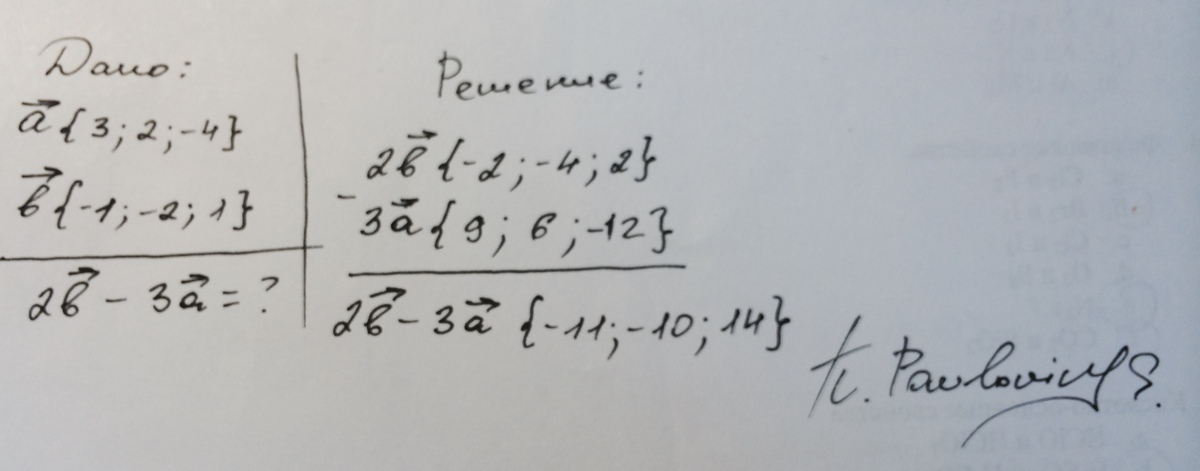 Дано:
a⃗ {3; 2; -4}
b⃗ {-1; -2; 1}
2b⃗ - 3a⃗ = ?
Решение:
2b⃗ {-2; -4; 2}
- 3a⃗ {9; 6; -12}
2b⃗ - 3a⃗ {-11; -10; 14}